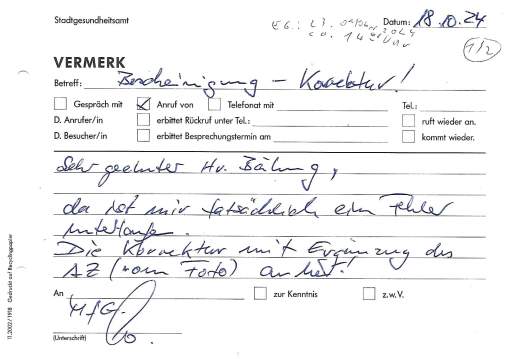 Stadtgesundheitsamt
EG: 23.
ca. 14 Uhr
Datum: 18.10.24
1/2
VERMERK
Betreff: Bescheinigung – Korrektur!
Gespräch mit Anruf von Telefonat mit Tel.:
D. Anrufer/in erbittet Rückruf unter Tel.: ruft wieder an.
D. Besucher/in erbittet Besprechungstermin am kommt wieder.
Sehr geehrter Hr. Bähung,
da ist mir tatsächlich ein Fehler
unterlaufen.
Die Korrektur mit Ergänzung des
AZ (vom Foto) anbei!
An zur Kenntnis z.w.V.
MfG.
(Unterschrift)
11.2002/1918 Gedruckt auf Recyclingpapier